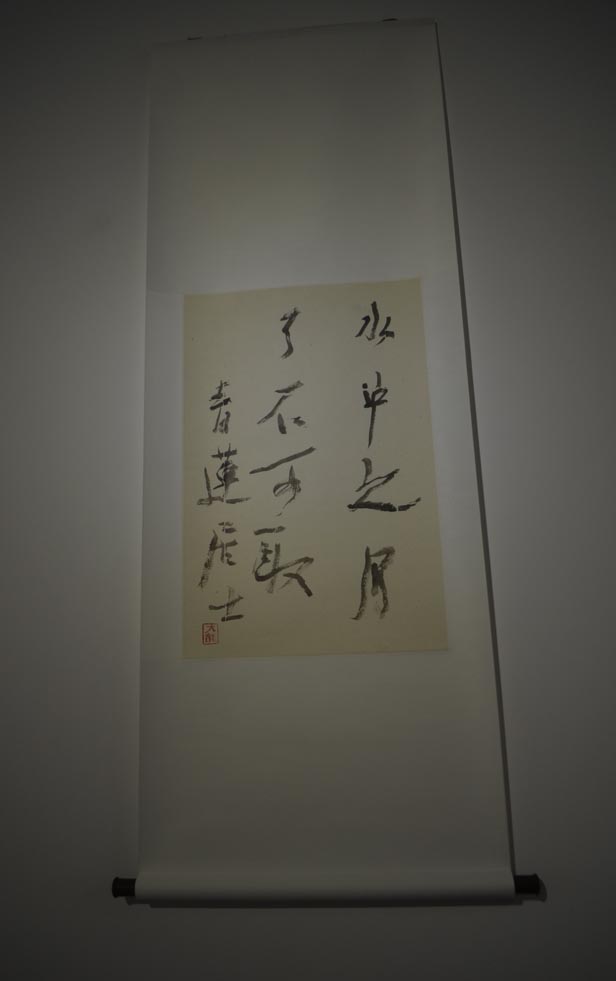 水中之月
了不可取
青莲居士